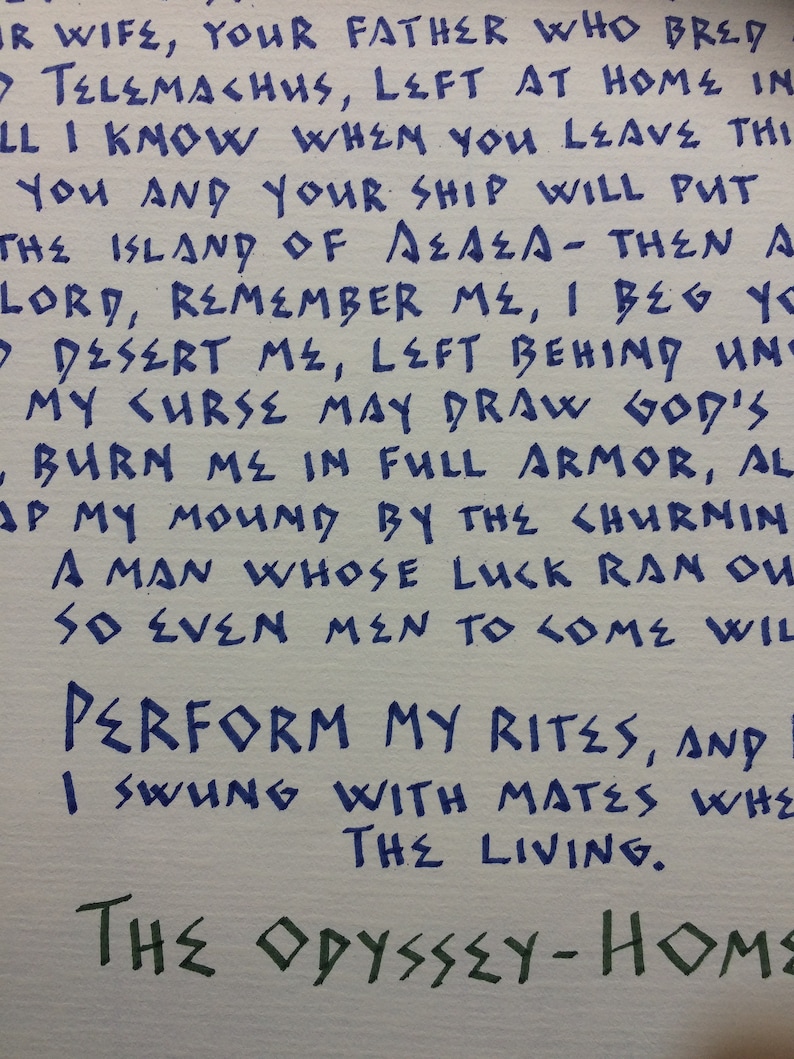 WIFE, YOUR FATHER WHO BRED
TELEMACHUS, LEFT AT HOME IN
I KNOW WHEN YOU LEAVE
YOU AND YOUR SHIP WILL PUT
THE ISLAND OF AEAEA- THEN
LORD, REMEMBER ME, I BEG
DESERT ME, LEFT BEHIND
MY CURSE MAY DRAW GOD'S
, BURN ME IN FULL ARMOR,
MY MOUND BY THE
A MAN WHOSE LUCK RAN
SO EVEN MEN TO COME
PERFORM MY RITES, AND
I SWUNG WITH MATES
THE LIVING.
THE ODYSSEY-